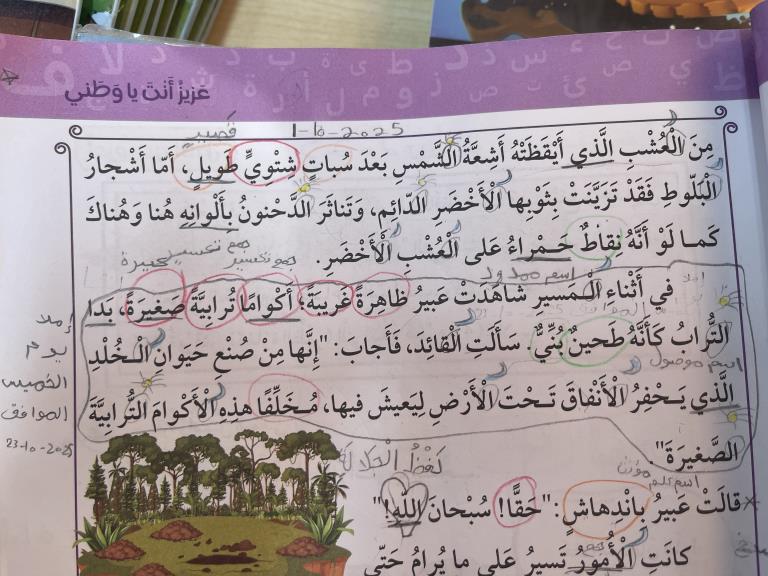 عَزيزٌ أَنتَ يا وَطَني
قَصيرٍ
1-10-2025
مِنَ الْعُشْبِ الَّذي أَيْقَظَتْهُ أَشِعَّةُ الشَّمْسِ بَعْدَ سُباتٍ شِتْوِيٍّ طَويلٍ، أَمّا أَشْجارُ
الْبَلّوطِ فَقَدْ تَزَيَّنَتْ بِثَوْبِها الْأَخْضَرِ الدّائِمِ، وَتَناثَرَ الدَّحْنونُ بِأَلْوانِهِ هُنا وَهُناكَ
كَمـا لَوْ أَنَّهُ نِقاطٌ حَـمْراءُ عَلى الْعُشْبِ الْأَخْضَرِ.
جمع تكسير
جمع تكسير
كبيرة
اسم ممدود
في أَثْناءِ الْـمَسيرِ شاهَدَتْ عَبيرُ ظاهِرَةً غَريبَةً؛ أَكْوامًا تُرابِيَّةً صَغيرَةً، بَدا
التُّرابُ كَأَنَّهُ طَحينٌ بُنِّيٌّ. سَأَلَتِ الْقائِدَ، فَأَجابَ: "إِنَّها مِنْ صُنْعِ حَيَوانِ الْـخُلْدِ
اسم موصول
الَّذي يَـحْفِرُ الْأَنْفاقَ تَـحْتَ الْأَرْضِ لِيَعيشَ فيها، مُـخَلِّفًا هذِهِ الْأَكْوامَ التُّرابِيَّةَ
الصَّغيرَةَ".
إملاء
يوم
الخميس
الموافق
23-10-2025
لَفْظُ الْجَلالَة
اسم علم
مؤنث
قالَتْ عَبيرُ بِانْدِهاشٍ: "حَقًّا! سُبْحانَ اللّٰهِ!"
كانَتِ الْأُمورُ تَسيرُ عَلى ما يُرامُ حَتّى